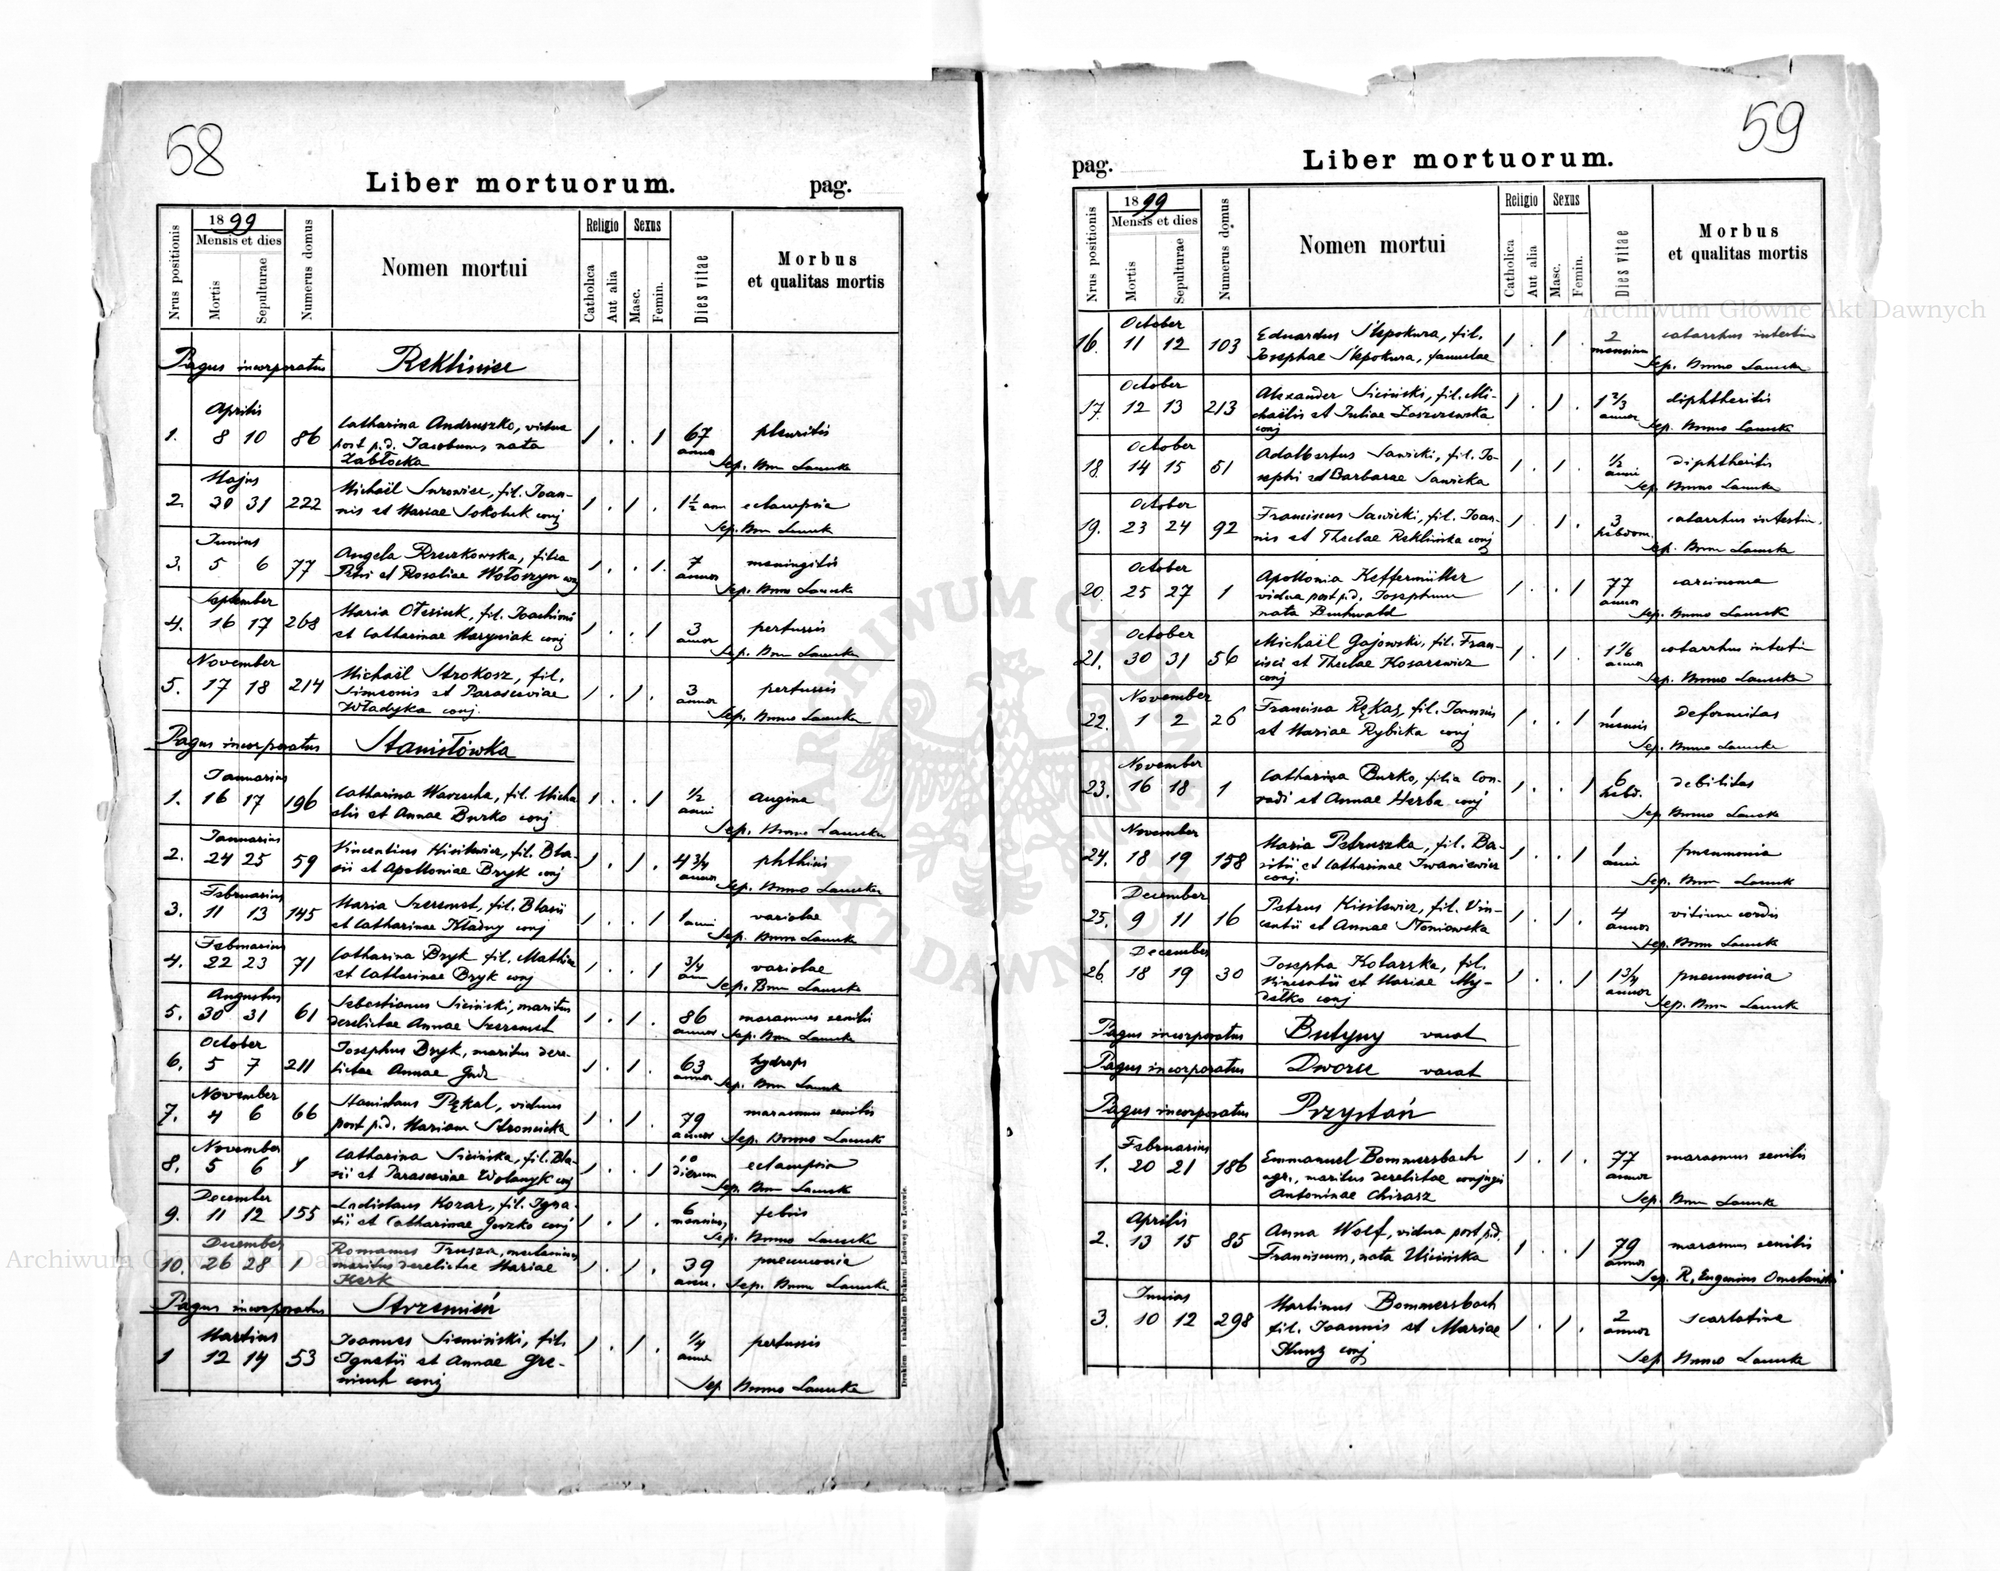 58
Liber mortuorum. pag.
Nrus positionis
1899
Mensis et dies
Mortis
Sepulturae
Numerus domus
Nomen mortui
Religio
Catholica
Aut alia
Sexus
Masc.
Femin.
Dies vitae
Morbus
et qualitas mortis
Pagus incorporatus Reklinice
Aprilis
1. 8 10 86 Catharina Andruszko, vidua
post p.d. Jacobum, nata
Zabłocka
1 . . 1 67 annor pleuritis
Sep. Bruno Laurek
Majus
2. 30 31 222 Michaël Surowiec, fil. Joan-
nis et Mariae Sokoluk conj
1 . 1 . 1½ ann eclampsia
Sep. Bruno
Junius
3. 5 6 77 Angela Rzeszkowska, filia
Petri et Rosaliae Wołoszyn conj
1 . . 1. 7 annor meningitis
Sep. Bruno
September
4. 16 17 268 Maria Oleksiuk, fil. Joachimi
et Catharinae Maryniak conj
1 . . 1 3 annor pertussis
Sep. Bruno
November
5. 17 18 214 Michaël Strokosz, fil.
Simeonis et Parasceviae
Władyka conj.
1 . 1 . 3 annor pertussis
Sep. Bruno
Pagus incorporatus Stanisłówka
Januarius
1. 16 17 196 Catharina Warucha, fil. Micha
elis et Annae Burko conj
1 . . 1 ½ anni angina
Sep. Bruno
Januarius
2. 24 25 59 Vincentius Kisilewicz, fil. Bla-
sii et Apolloniae Bryk conj
1 . 1 . 4 3/4 annor phthisis
Sep. Bruno
Februarius
3. 11 13 145 Maria Szeremet, fil. Blasii
et Catharinae Kładny conj
1 . . 1 1 anni variolae
Sep. Bruno
Februarius
4. 22 23 71 Catharina Bryk fil. Mathiae
et Catharinae Bryk conj
1 . . 1 3/4 ann variolae
Sep. Bruno
Augustus
5. 30 31 61 Sebastianus Siciński, maritus
derelictae Annae Szeremet
1 . 1 . 86 annor marasmus senilis
Sep. Bruno
October
6. 5 7 211 Josephus Bryk, maritus dere-
lictae Annae
1 . 1 . 63 annor hydrops
Sep. Bruno
November
7. 4 6 66 Stanislaus Pękal, viduus
post p.d. Mariam Stronicka
1 . 1 . 79 annor marasmus senilis
Sep. Bruno
November
8. 5 6 Catharina Sicińska, fil. Bla-
sii et Parasceviae Wolanyk conj
1 . . 1 10 dierum eclampsia
Sep. Bruno
December
9. 11 12 155 Ladislaus Kozar, fil. Igna-
tii et Catharinae Gorzko conj
1 . 1 . 6 mensium febris
Sep. Bruno
December
10. 26 28 1 Romanus
maritus derelictae Mariae
Kerk
1 . 1 . 39 ann. pneumonia
Sep. Bruno
Pagus incorporatus Strzemień
Martius
1 12 14 53 Joannes Siemiński, fil.
Ignatii et Annae Gre-
niuch conj
1 . 1 . 1/4 anni pertussis
Sep Bruno
Drukiem i nakładem Drukarni Ludowej we Lwowie.
59
pag. Liber mortuorum.
Nrus positionis
1899
Mensis et dies
Mortis
Sepulturae
Numerus domus
Nomen mortui
Religio
Catholica
Aut alia
Sexus
Masc.
Femin.
Dies vitae
Morbus
et qualitas mortis
October
16. 11 12 103 Eduardus Ślepokura, fil.
Josephae Ślepokura, famulae
1 . 1 . 2 mensium catarrhus intestin
Sep. Bruno
October
17. 12 13 213 Alexander Siciński, fil. Mi-
chaëlis et Juliae Zaszczewska
conj
1 . 1 . 1 2/3 annor diphtheritis
Sep. Bruno
October
18. 14 15 51 Adalbertus Sawicki, fil. Jo-
sephi et Barbarae Sawicka
1 . 1 . ½ anni diphtheritis
Sep. Bruno
October
19. 23 24 92 Franciscus Sawicki, fil. Joan-
nis et Theclae Reklińska conj
1 . 1 . 3 hebdom. catarrhus intestin.
Sep. Bruno
October
20. 25 27 1 Apollonia Keffermüller
vidua post p.d. Josephum
nata Buchwald
1 . . 1 77 annor carcinoma
Sep. Bruno
October
21. 30 31 56 Michaël Gajowski, fil. Fran-
cisci et Theclae Kosarewicz
conj
1 . 1 . 1 1/6 annor catarrhus intestin
Sep. Bruno
November
22. 1 2 26 Francisca Rękas, fil. Joannis
et Mariae Rybicka conj
1 . . 1 1 mensis Deformitas
Sep. Bruno
November
23. 16 18 1 Catharina Burko, filia Con-
radi et Annae Herba conj
1 . . 1 6 hebd. debilitas
Sep Bruno
November
24. 18 19 158 Maria Petruszka, fil. Ba-
silii et Catharinae Iwaniewicz
conj.
1 . . 1 1 anni pneumonia
Sep. Bruno
December
25. 9 11 16 Petrus Kisilewicz, fil. Vin-
centii et Annae Słoniowska
1 . 1 . 4 annor vitium cordis
Sep. Bruno
December
26. 18 19 30 Josepha Kolarska, fil.
Vincentii et Mariae My-
dełko conj
1 . . 1 1 3/4 annor pneumonia
Sep. Bruno
Pagus incorporatus Butyny vacat
Pagus incorporatus Dworce vacat
Pagus incorporatus Przystań
Februarius
1. 20 21 186 Emmanuel Bommersbach
agr., maritus derelictae conjugis
Antoninae Chirasz
1 . 1 . 77 annor marasmus senilis
Sep. Bruno
Aprilis
2. 13 15 85 Anna Wolf, vidua post p.d.
Franciscum, nata Uścińska
1 . . 1 79 annor marasmus senilis
Sep. R. Eugenius Omelański
Junius
3. 10 12 298 Martinus Bommersbach
fil. Joannis et Mariae
Kunz conj
1 . 1 . 2 annor scarlatina
Sep Bruno
Archiwum Główne Akt Dawnych
ARCHIWUM GŁÓWNE AKT DAWNYCH
Archiwum Główne Akt Dawnych